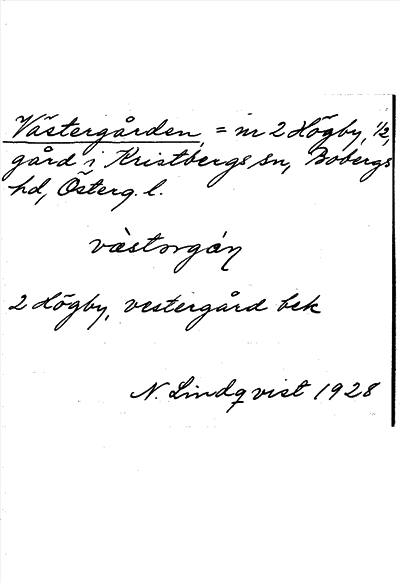 Västergården, = nr 2 Högby, 1/2,
gård i Kristbergs sn, Bobergs
hd, Österg. l.
västərgán
2 Högby, vestergård bek
N. Lindqvist 1928